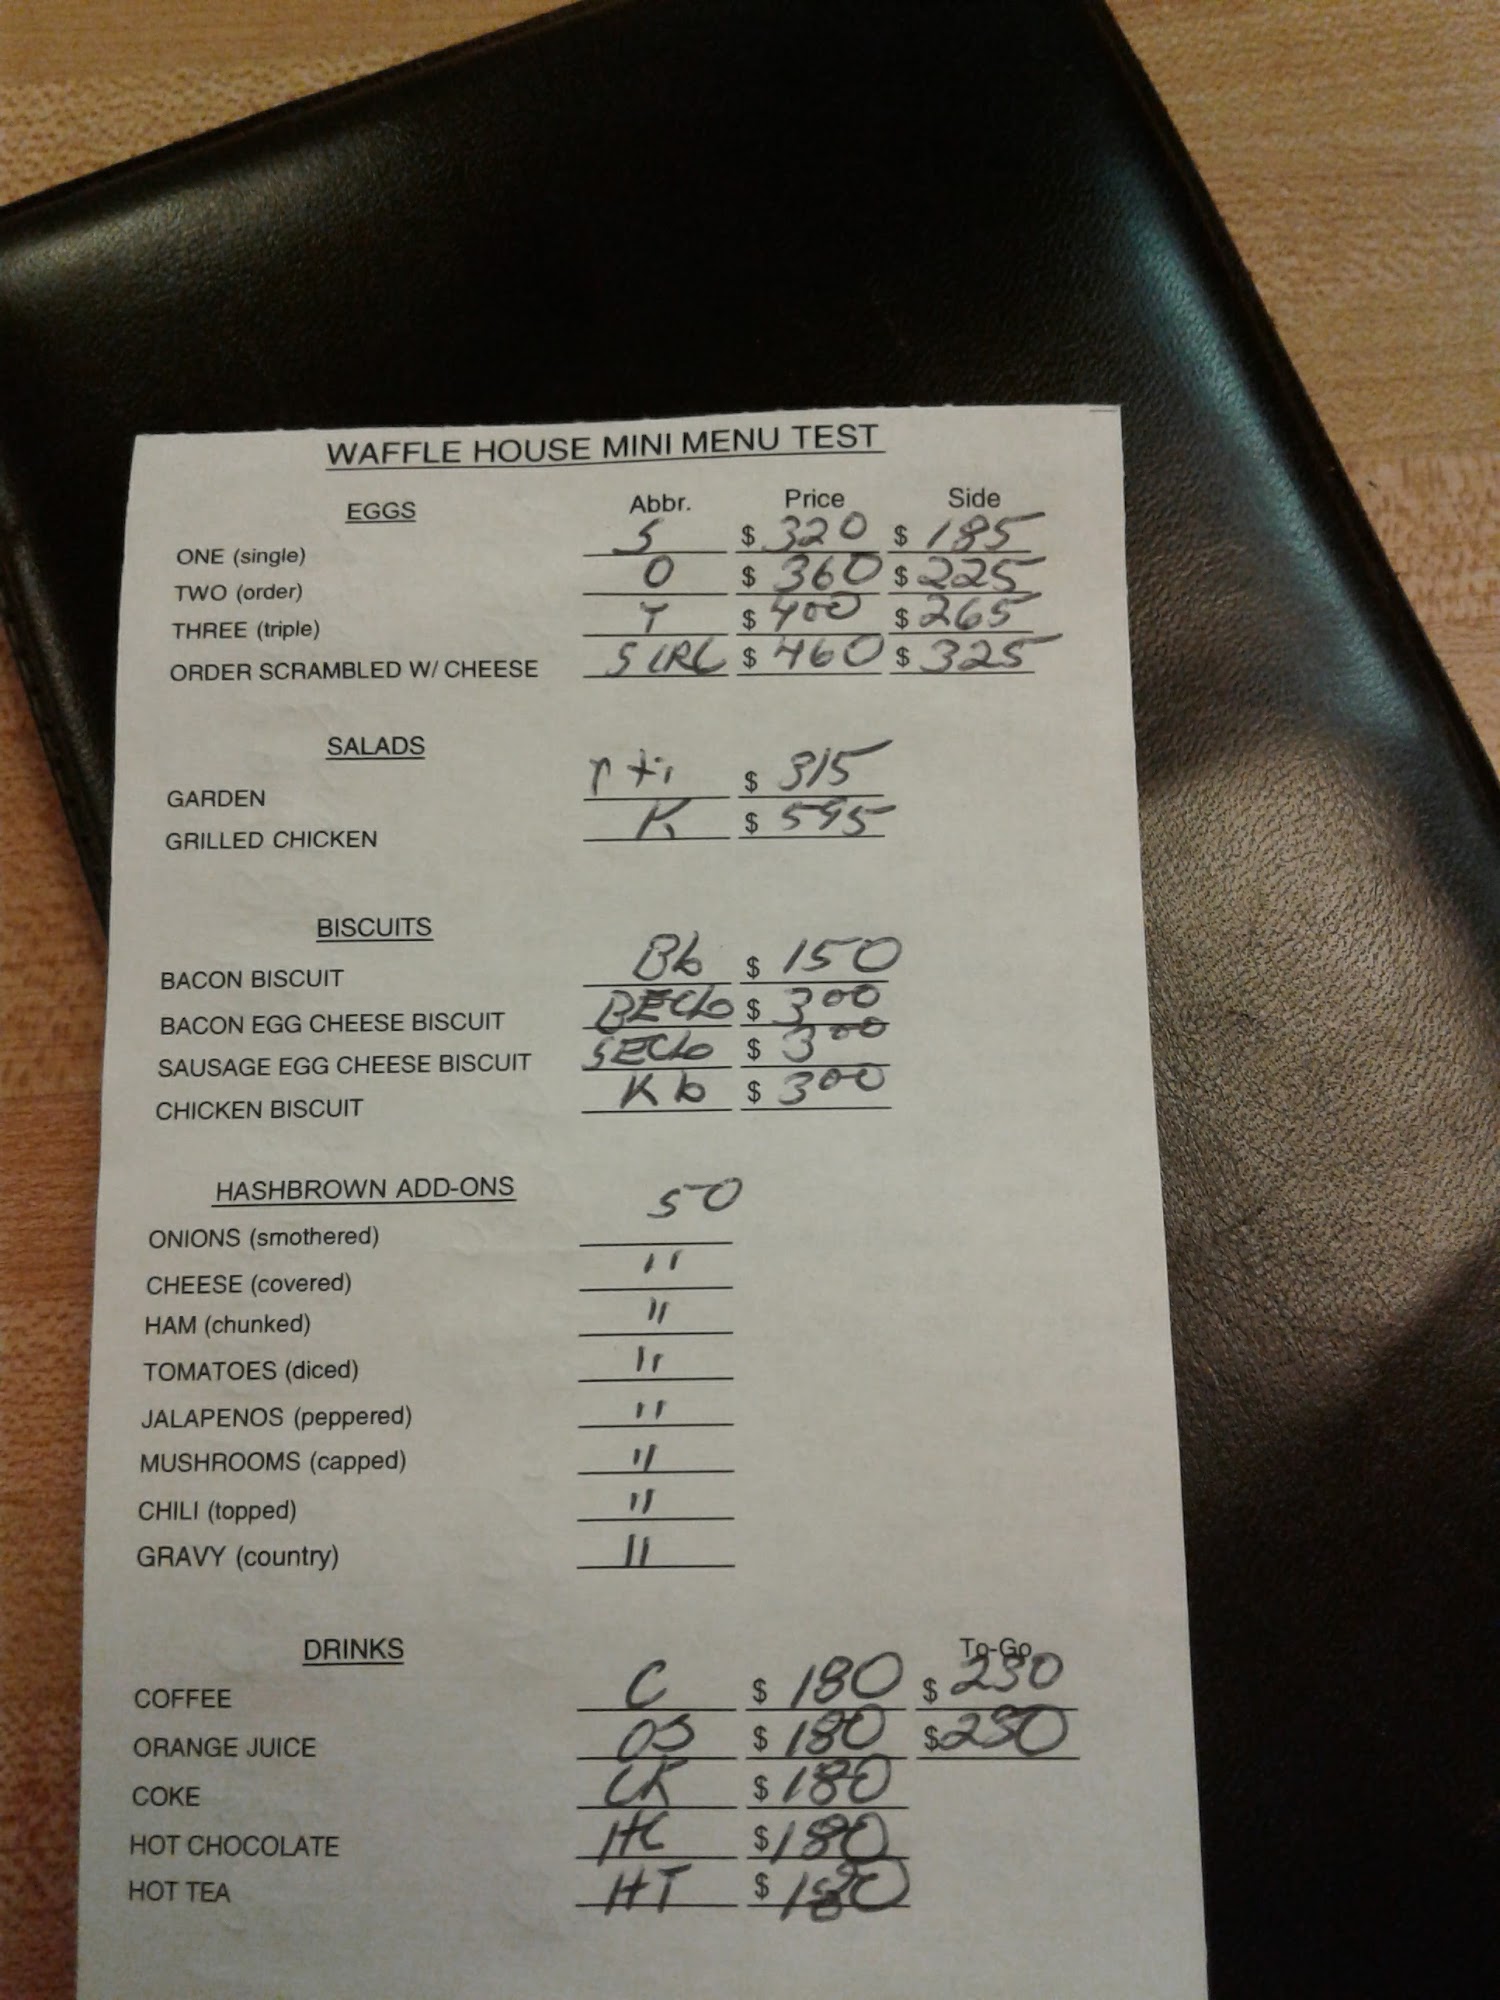 WAFFLE HOUSE MINI MENU TEST
EGGS Abbr. Price Side
ONE (single) S $ 320 $ 185
TWO (order) O $ 360 $ 225
THREE (triple) T $ 400 $ 265
ORDER SCRAMBLED W/ CHEESE $ 460 $ 325
SALADS
GARDEN $ 315
GRILLED CHICKEN K $ 595
BISCUITS
BACON BISCUIT Bb $ 150
BACON EGG CHEESE BISCUIT BECb $ 300
SAUSAGE EGG CHEESE BISCUIT SECb $ 300
CHICKEN BISCUIT Kb $ 300
HASHBROWN ADD-ONS
ONIONS (smothered) 50
CHEESE (covered) "
HAM (chunked) "
TOMATOES (diced) "
JALAPENOS (peppered) "
MUSHROOMS (capped) "
CHILI (topped) "
GRAVY (country) "
DRINKS To-Go
COFFEE C $ 180 $ 230
ORANGE JUICE OJ $ 180 $ 230
COKE CK $ 180
HOT CHOCOLATE HC $ 180
HOT TEA HT $ 180